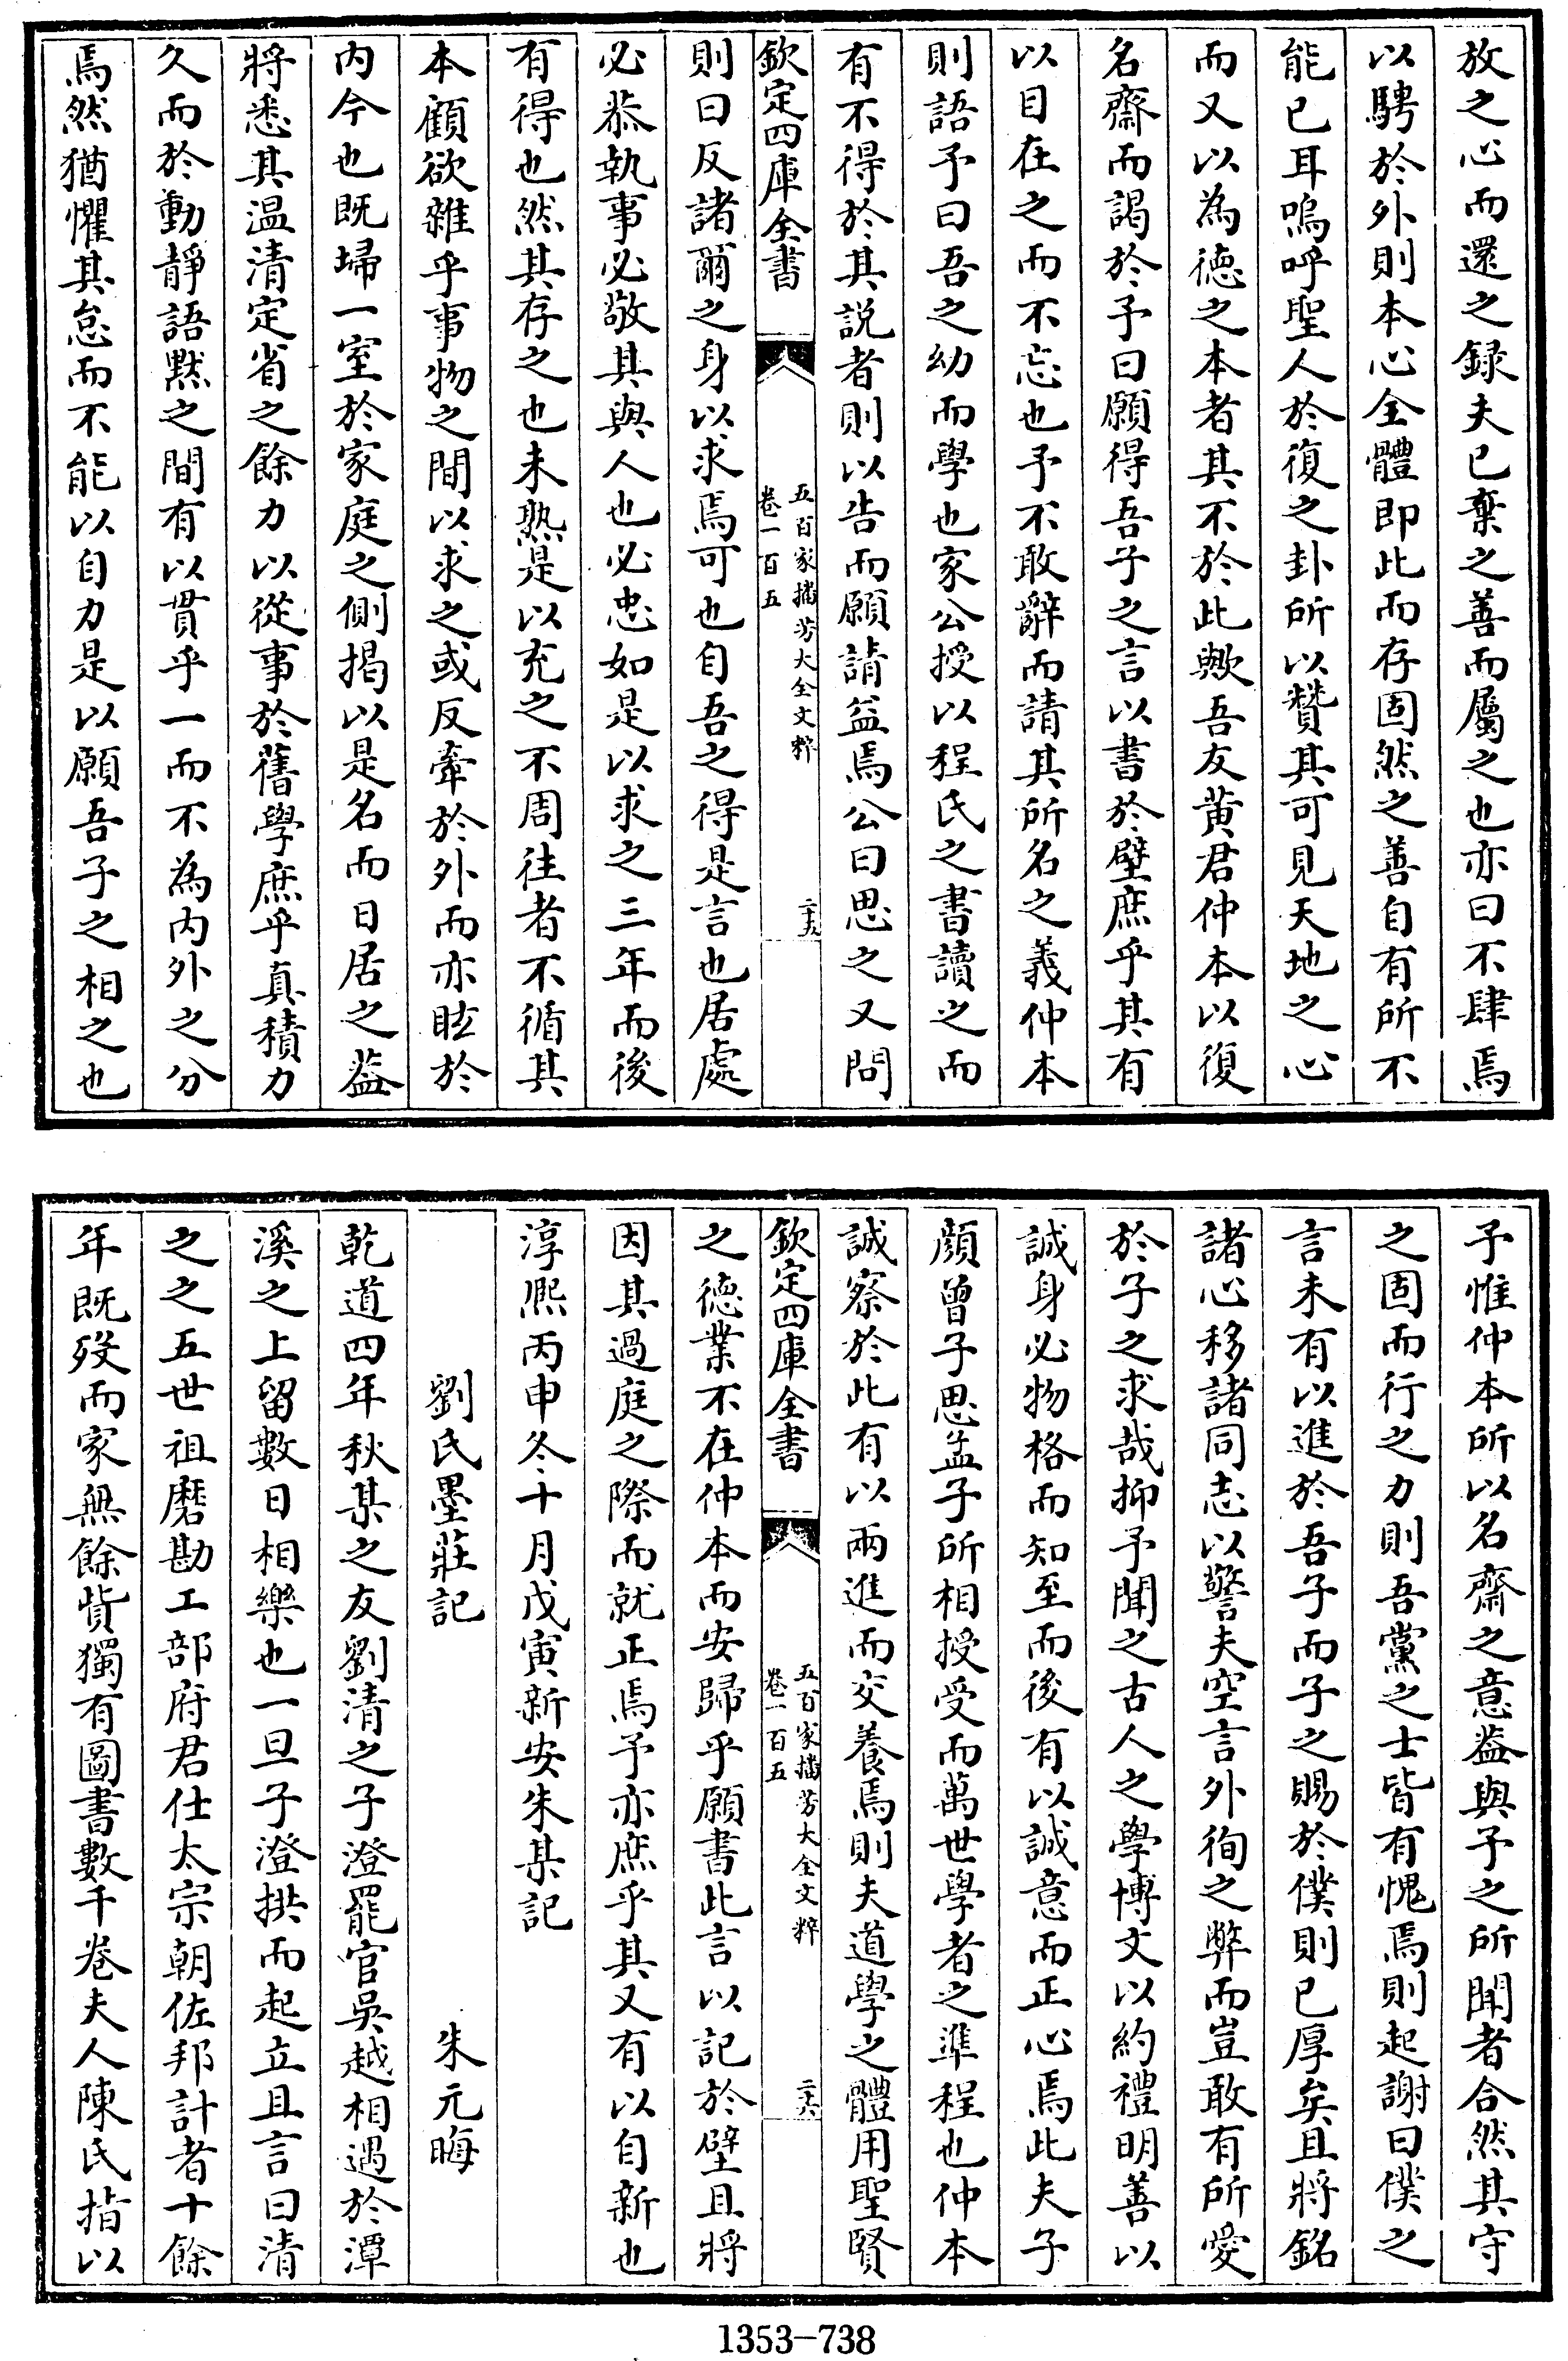 放之心而還之録夫已棄之善而屬之也亦曰不肆焉
以騁於外則本心全體即此而存固然之善自有所不
能已耳嗚呼聖人於復之卦所以贊其可見天地之心
而又以為徳之本者其不於此歟吾友黄君仲本以復
名齋而謁於予曰願得吾子之言以書於壁庶乎其有
以目在之而不忘也予不敢辭而請其所名之義仲本
則語予曰吾之幼而學也家公授以程氏之書讀之而
有不得於其説者則以告而願請益焉公曰思之又問
欽定四庫全書
五百家播芳大全文粹
卷一百五
二十五
則曰反諸爾之身以求焉可也自吾之得是言也居處
必恭執事必敬其與人也必忠如是以求之三年而後
有得也然其存之也未熟是以充之不周往者不循其
本顧欲雜乎事物之間以求之或反牽於外而亦眩於
内今也既埽一室於家庭之側揭以是名而日居之蓋
將悉其温清定省之餘力以從事於舊學庶乎真積力
久而於動靜語黙之間有以貫乎一而不為内外之分
焉然猶懼其怠而不能以自力是以願吾子之相之也
予惟仲本所以名齋之意蓋與予之所聞者合然其守
之固而行之力則吾黨之士皆有愧焉則起謝曰僕之
言未有以進於吾子而子之賜於僕則已厚矣且將銘
諸心移諸同志以警夫空言外徇之弊而豈敢有所愛
於子之求哉抑予聞之古人之學博文以約禮明善以
誠身必物格而知至而後有以誠意而正心焉此夫子
顔曾子思孟子所相授受而萬世學者之準程也仲本
誠察於此有以兩進而交養焉則夫道學之體用聖賢
欽定四庫全書
五百家播芳大全文粹
卷一百五
二十六
之徳業不在仲本而安歸乎願書此言以記於壁且將
因其過庭之際而就正焉予亦庶乎其又有以自新也
淳熙丙申冬十月戊寅新安朱某記
劉氏墨莊記　朱元晦
乾道四年秋某之友劉清之子澄罷官吳越相遇於潭
溪之上留數日相樂也一旦子澄拱而起立且言曰清
之之五世祖磨勘工部府君仕太宗朝佐邦計者十餘
年既歿而家無餘貲獨有圖書數千卷夫人陳氏指以
1353-738